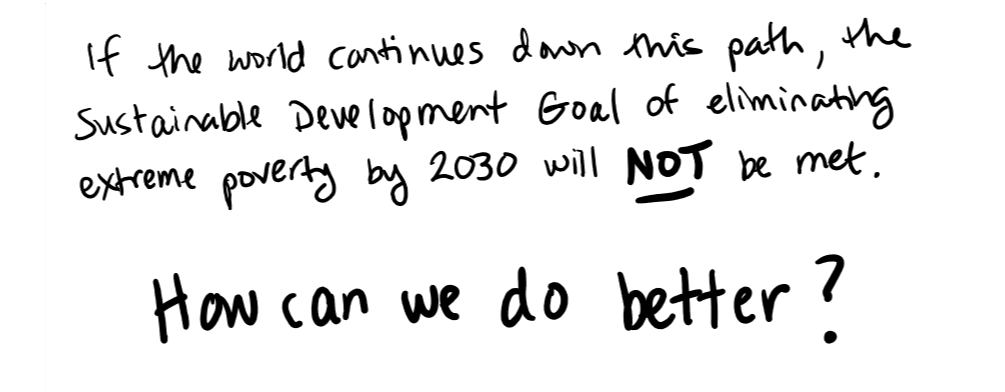 If the world continues down this path, the
Sustainable Development Goal of eliminating
extreme poverty by 2030 will NOT be met.
How can we do better?